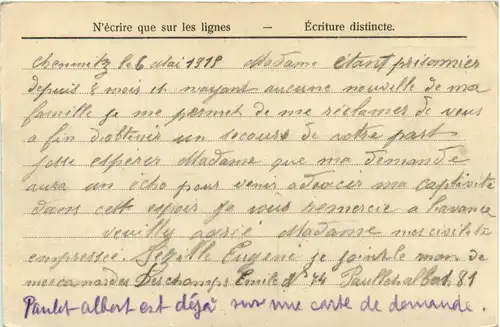 N'écrire que sur les lignes — Écriture distincte.
Chemnitz le 6 Mai 1918 Madame étant prisonnier
depuis 8 mois et nayant aucune nouvelle de ma
famille je me permet de me réclamer de vous
a fin d'obtenir un secours de votre part
Josse espérer Madame que ma demande
aura un écho pour venir adoucir ma captivité
dans cett espoir je vous remercie a lavance
veuilly agréé Madame mes civilité
empressée. Eugéne je joint le mon de
mes camardes Deschamps Emile No 74 Paullet albert. 81
Paulet Albert est déjà sur une carte de demande.